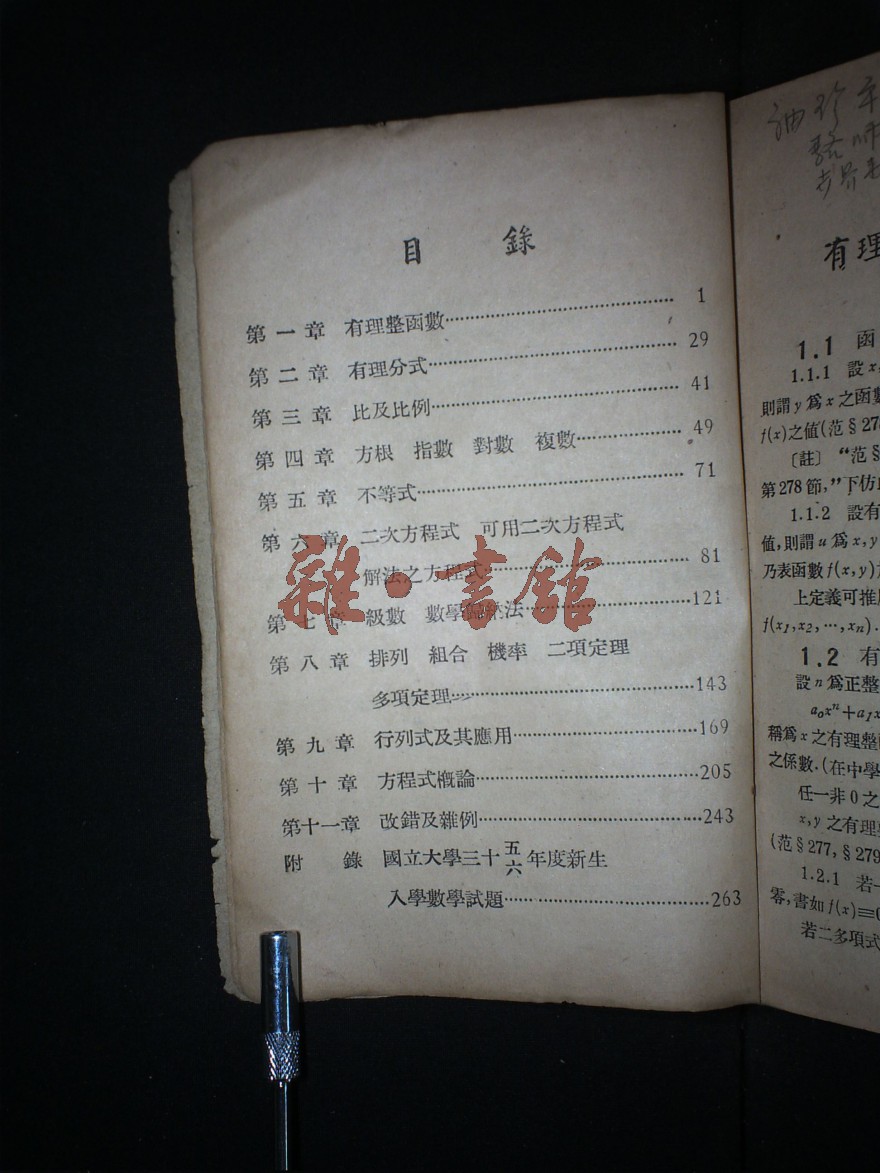 目 錄
第一章 有理整函數…………1
第二章 有理分式…………29
第三章 比及比例…………41
第四章 方根 指數 對數 複數…………49
第五章 不等式…………71
第六章 二次方程式 可用二次方程式
解法之方程式…………81
第七章 級數 數學歸法…………121
第八章 排列 組合 機率 二項定理
多項定理…………143
第九章 行列式及其應用…………169
第十章 方程式概論…………205
第十一章 改錯及雜例…………243
附 錄 國立大學三十五六年度新生
入學數學試題…………263
雜·書館
有理
1.1 函
1.1.1 設x,
則謂y爲x之函數
f(x)之值(范§278
〔註〕 “范§
第278節,”下仿
1.1.2 設有
值,則謂u爲x,y
乃表函數f(x,y)
上定義可推
f(x₁,x₂,…,xₙ).
1.2 有
設n爲正整
a₀xⁿ+a₁x
稱爲x之有理整
之係數.(在中學
任一非0之
x,y之有理
(范§277,§279
1.2.1 若
零,書如f(x)≡0
若二多項式